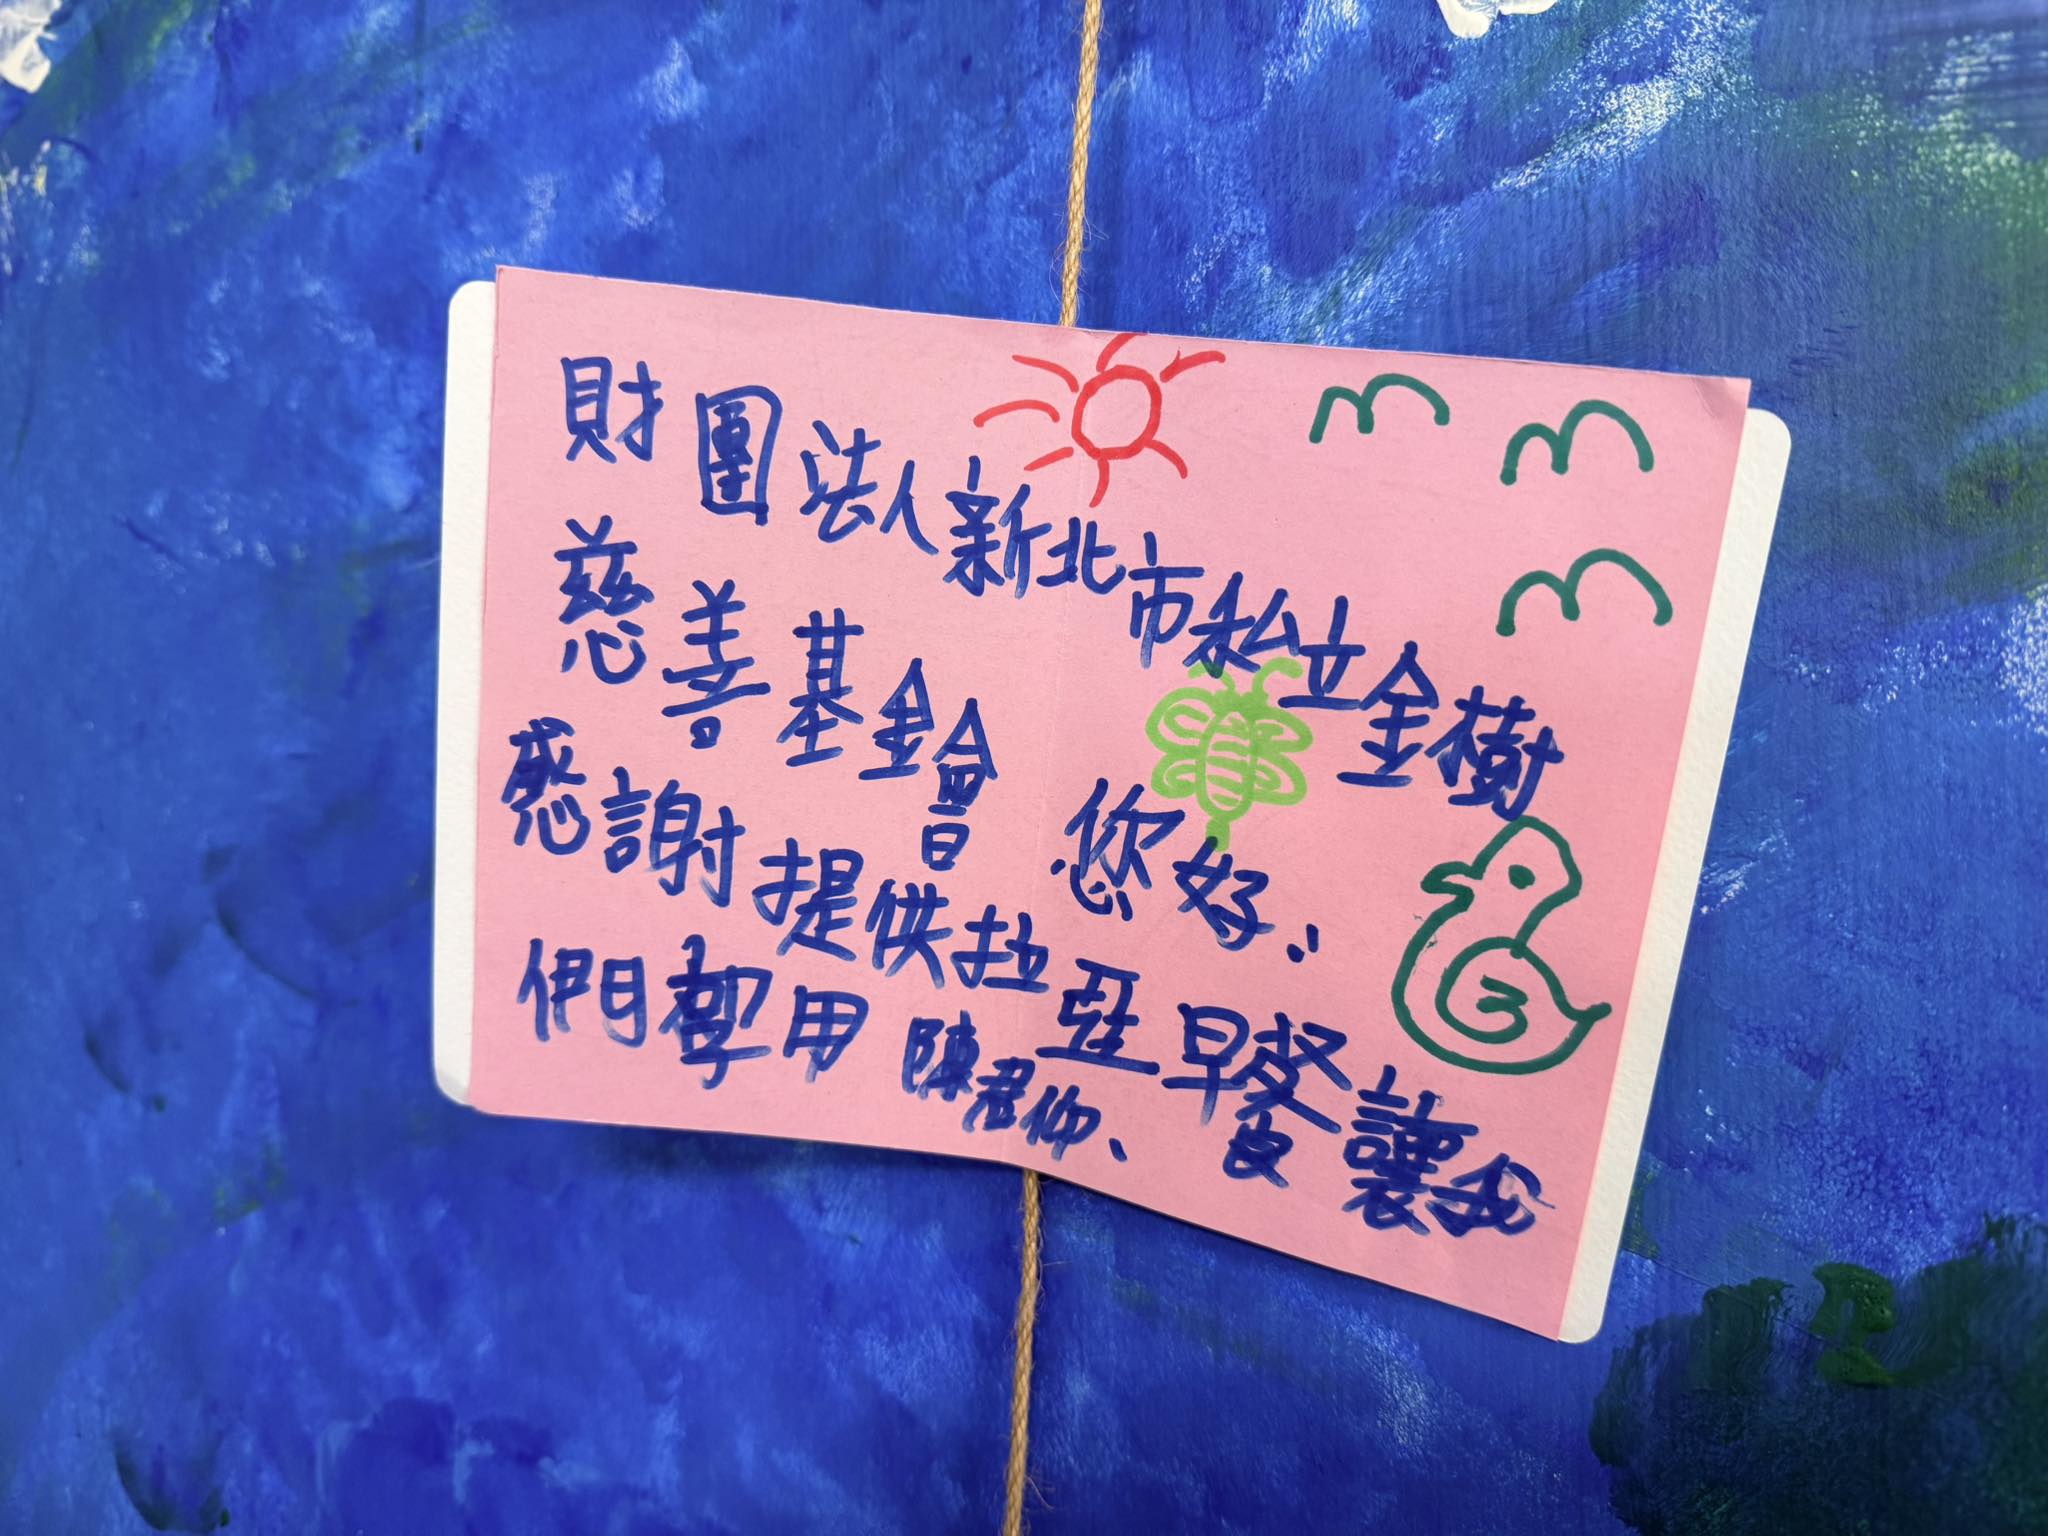 財團法人新北市私立金樹
慈善基金會 您好:
感謝提供拉亞早餐讓我
們享用 陳君仰、